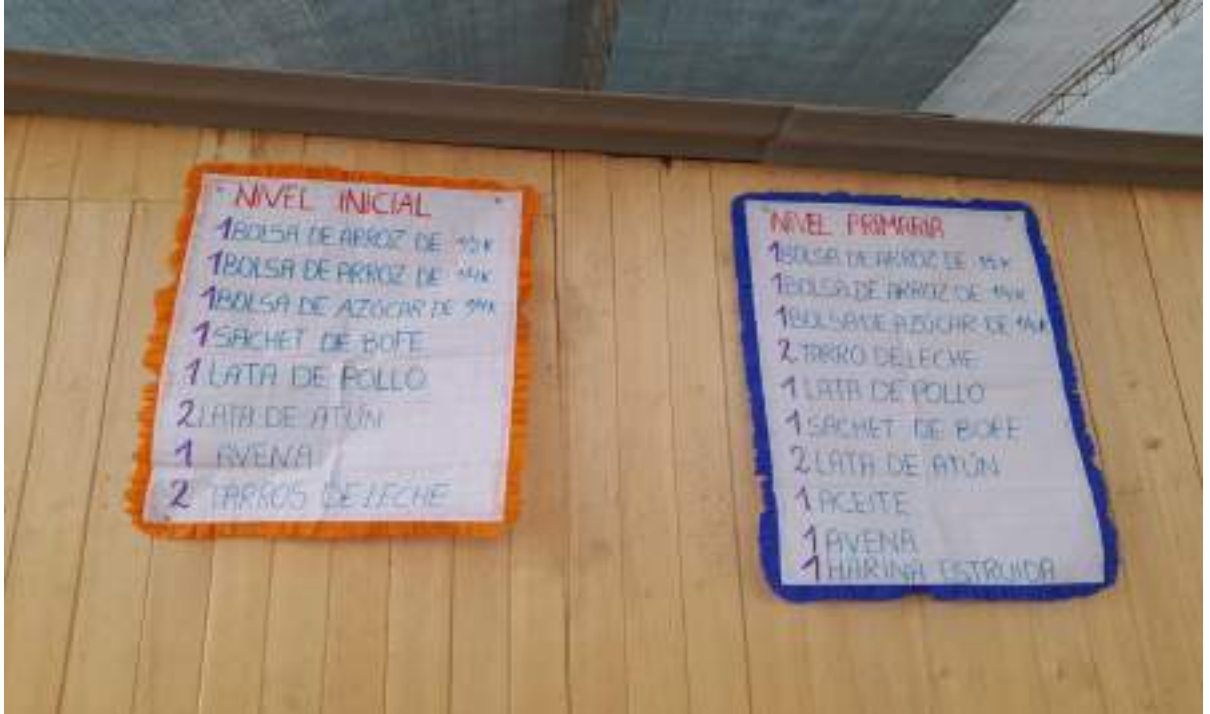 NIVEL INICIAL
1 BOLSA DE ARROZ DE
1 BOLSA DE ARROZ DE
1 BOLSA DE AZÚCAR DE
1 SACHET DE BOFE
1 LATA DE POLLO
2 LATA DE ATÚN
1 AVENA
2 TARROS DE LECHE
NIVEL PRIMARIA
1 BOLSA DE ARROZ DE
1 BOLSA DE ARROZ DE
1 BOLSA DE AZÚCAR DE
2 TARRO DE LECHE
1 LATA DE POLLO
1 SACHET DE BOFE
2 LATA DE ATÚN
1 ACEITE
1 AVENA
1 HARINA ESTRUIDA